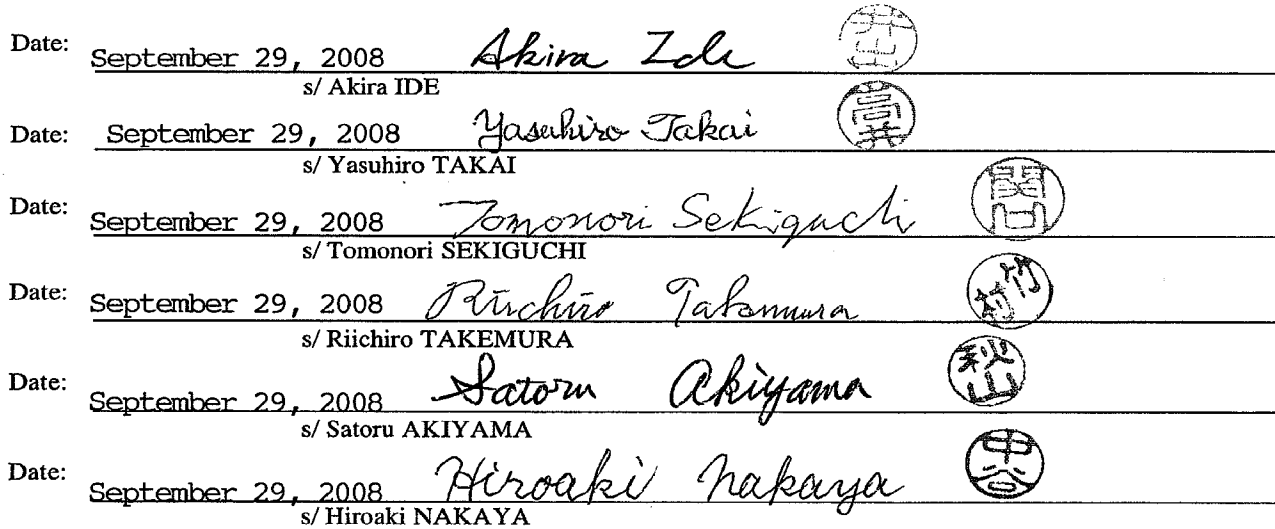 Date: September 29, 2008 Akira Ide 井出
s/ Akira IDE
Date: September 29, 2008 Yasuhiro Takai 高井
s/ Yasuhiro TAKAI
Date: September 29, 2008 Tomonori Sekiguchi 関口
s/ Tomonori SEKIGUCHI
Date: September 29, 2008 Riichiro Takemura 竹村
s/ Riichiro TAKEMURA
Date: September 29, 2008 Satoru Akiyama 秋山
s/ Satoru AKIYAMA
Date: September 29, 2008 Hiroaki Nakaya
s/ Hiroaki NAKAYA